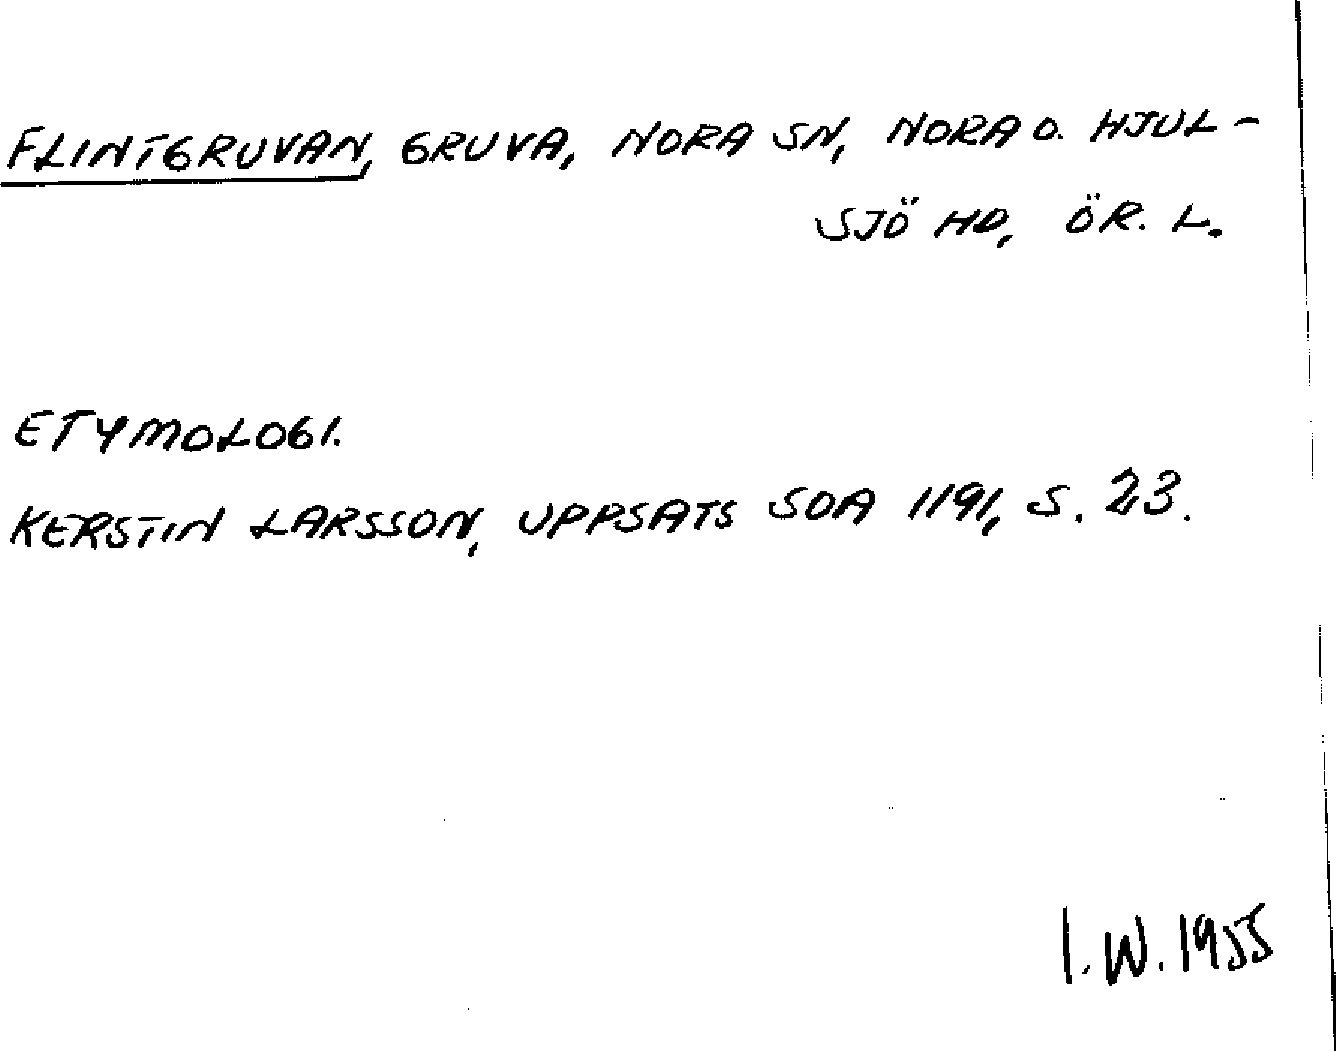 FLINTGRUVAN, GRUVA, NORA SN, NORA O. HJUL-
SJÖ HD, ÖR. L.
ETYMOLOGI.
KERSTIN LARSSON, UPPSATS SOA 1191, S. 23.
I.W. 1955